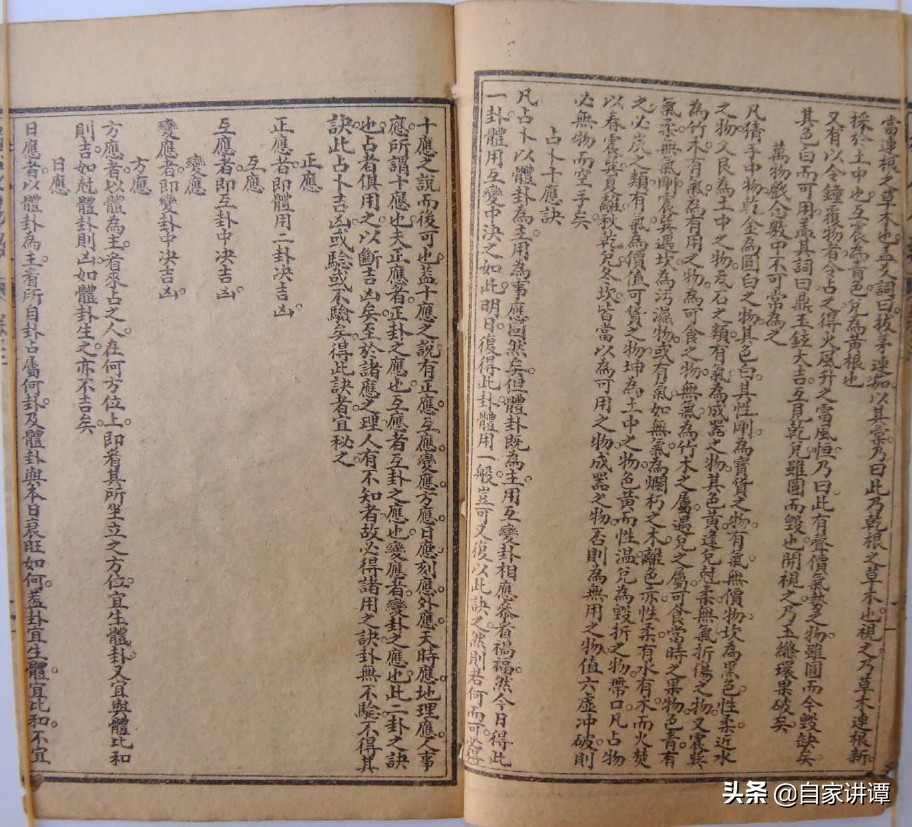 當連根之草木也蓋爻詞曰拔茅連茹以其彙乃曰此乃乾根之草木也視之乃草木連根新
採於土中也互震為青色兌為黃根也
又有以令鐘覆物者令占之得火風升之雷風恒乃曰此有聲價氣勢之物雖圓而今毀缺矣
其色白而可用蓋其詞曰鼎玉鉉大吉互見乾兌雖圓而毀也開視之乃玉絛環果破矣
萬物戲念數中不可常為之
凡猜手中物乾金為圓白之物其色白其性剛為寶貨之物有氣無價物坎為黑色性柔近水
之物文艮為土中之物瓦石之類有氣為成器之物其色黄逢兌尅柔無氣折傷之物又震巽
為竹木有氣為有用之物為可食之物無氣為竹木之屬遇兌之屬可食當時之果物色青有
氣柔無氣剛震巽遇坎為污濕物或有氣如無氣為爛朽之木離色亦性柔有水有木而火焚
之必炭之類有氣為價值可貨之物坤為土中之物色黄而性温兌為毀折之物帶口凡占物
以春震巽夏離秋乾兌冬坎皆當以為可用之物成器之物否則為無用之物值六虛冲破則
必無物而空手矣
占卜十應訣
凡占卜以體卦為主用為事應固然矣但體卦既為主用互變卦相應參看禍福然今日得此
一卦體用互變中決之如此明日復得此卦體用一般豈可又復以此訣之然則若何而可必得
十應之說而後可也蓋十應之說有正應互應變應方應日應刻應外應天時應地理應人事
應所謂十應也夫正應者正卦之應也互應者互卦之應也變應者變卦之應也此二卦之訣
也占者俱用之以斷吉凶矣至於諸應之理人有不知者故必得諸用之訣卦無不驗不得其
訣此占卜吉凶或驗或不驗矣得此訣者宜秘之
正應
正應者即體用二卦决吉凶
互應
互應者即互卦中决吉凶
變應
變應者即變卦中决吉凶
方應
方應者以體為主看來占之人在何方位上即看其所坐立之方位宜生體卦又宜與體比和
則吉如尅體卦則凶如體卦生之亦不吉矣
日應
日應者以體卦為主看所自卦占屬何卦及體卦與本日衰旺如何蓋卦宜生體宜比和不宜
头条 @自家讲谭